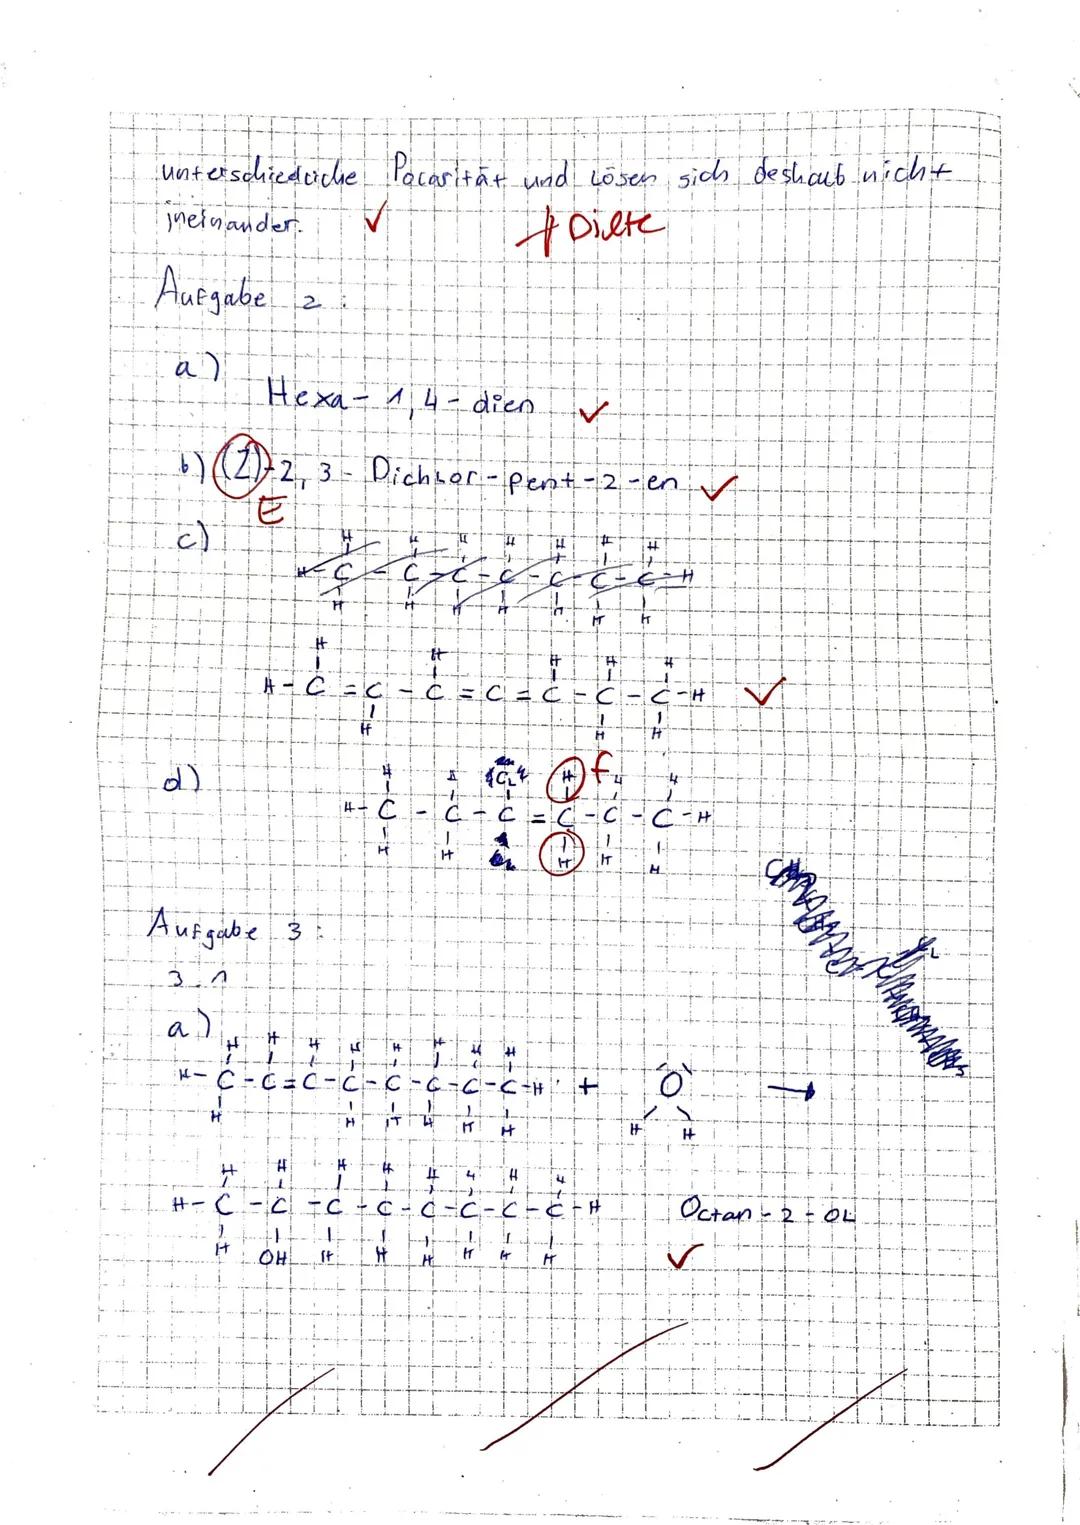 unterschiedliche Polarität und lösen sich deshalb nicht
ineinander. ✓
+ Dichte
Aufgabe 2:
a)
Hexa-1,4-dien ✓
b) (Z)-2,3-Dichlor-pent-2-en ✓
E
c)
H H H H H H H
H-C-C-C-C-C-C-C-H
H H H H H H H
H H H H H
H-C=C-C=C=C-C-C-H ✓
H H H
d)
H H CL H f H H
H-C-C-C=C-C-C-H
H H H H H
Aufgabe 3:
3.1
a)
H H H H H H H H
H-C-C=C-C-C-C-C-C-H + O →
H H H H H H H H
H H H H H H H H
H-C-C-C-C-C-C-C-C-H Octan-2-OL
H OH H H H H H H ✓